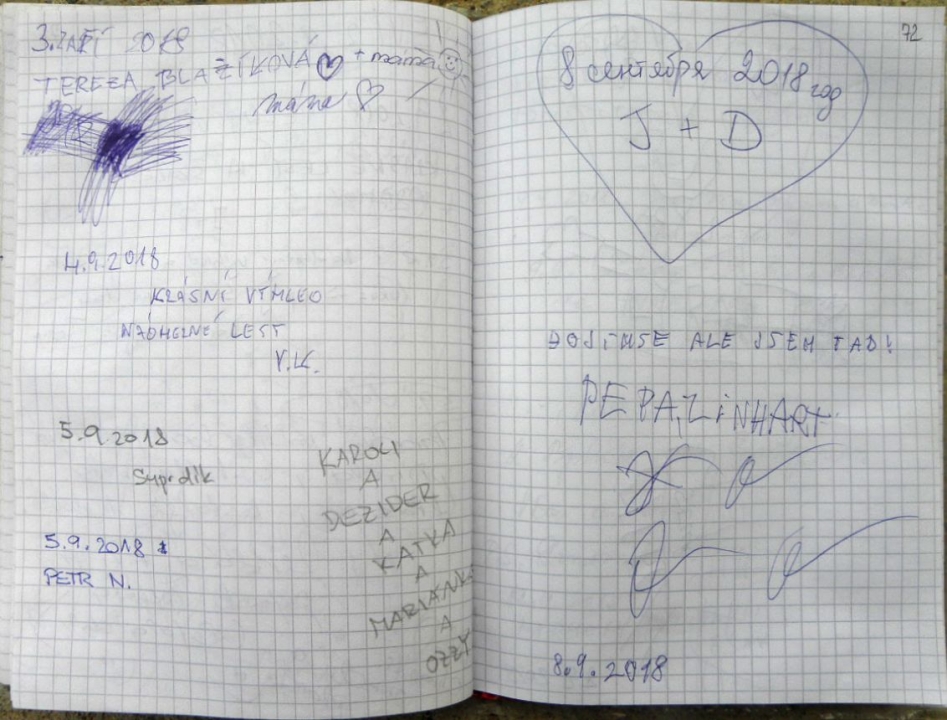 3. ZÁŘÍ 2018
TEREZA BLAŽÍKOVÁ + mama
máma
4.9.2018
KRÁSNÍ VÝHLED
NÁDHERNÉ LEST
V.K.
5.9.2018
Suprdik
KAROLI
A
DEZIDER
A
KATKA
A
A
OZZY
5.9.2018
PETR N.
72
8 сентября 2018 год
J + D
ALE JSEM TAD!
PEPA LiNHART
8.9.2018